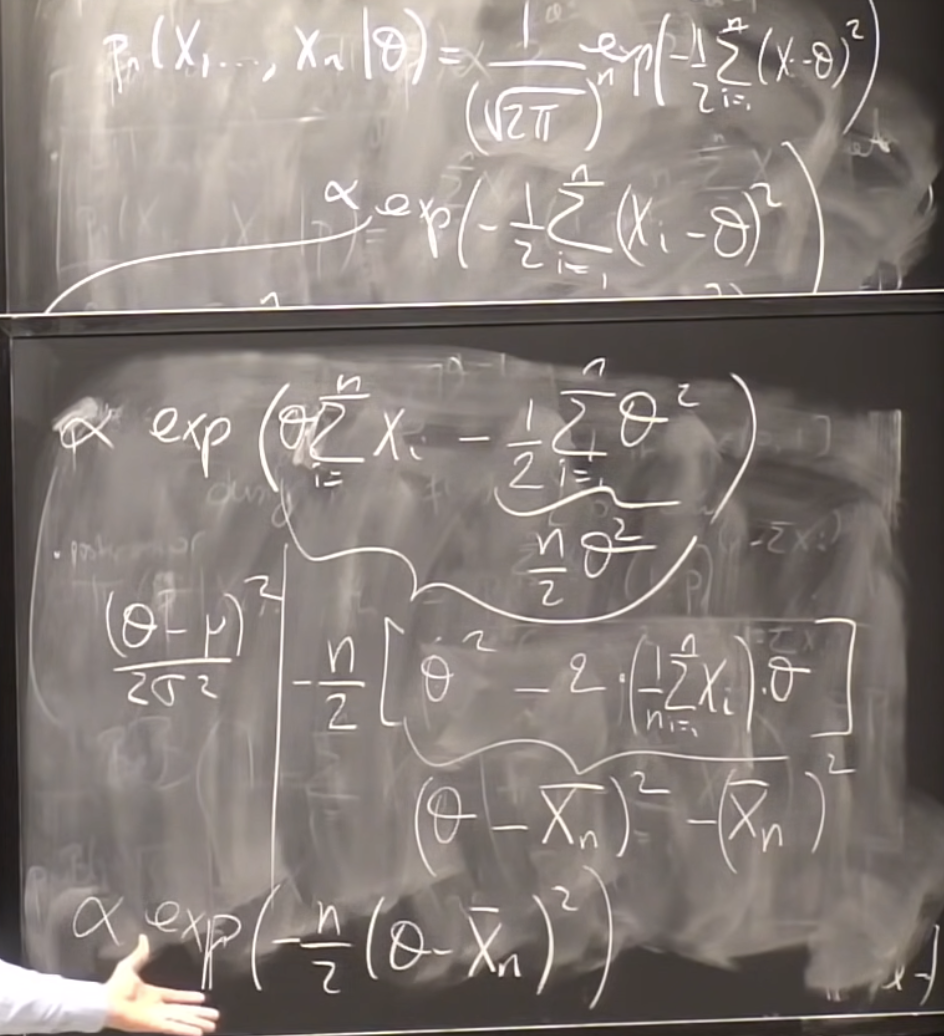 pₙ(X₁..., Xₙ|θ) = 1/(√2π)ⁿ exp(-1/2 Σᵢ₌₁ⁿ (Xᵢ-θ)²)
∝ exp(-1/2 Σᵢ₌₁ⁿ (Xᵢ-θ)²)
∝ exp(θ Σᵢ₌ⁿ Xᵢ - 1/2 Σᵢ₌₁ⁿ θ²)
n/2 θ²
(θ-μ)²/2σ²
-n/2 [θ² - 2·(1/n Σᵢ₌₁ⁿ Xᵢ)·θ]
(θ-X̄ₙ)² - (X̄ₙ)²
∝ exp(-n/2 (θ-X̄ₙ)²)